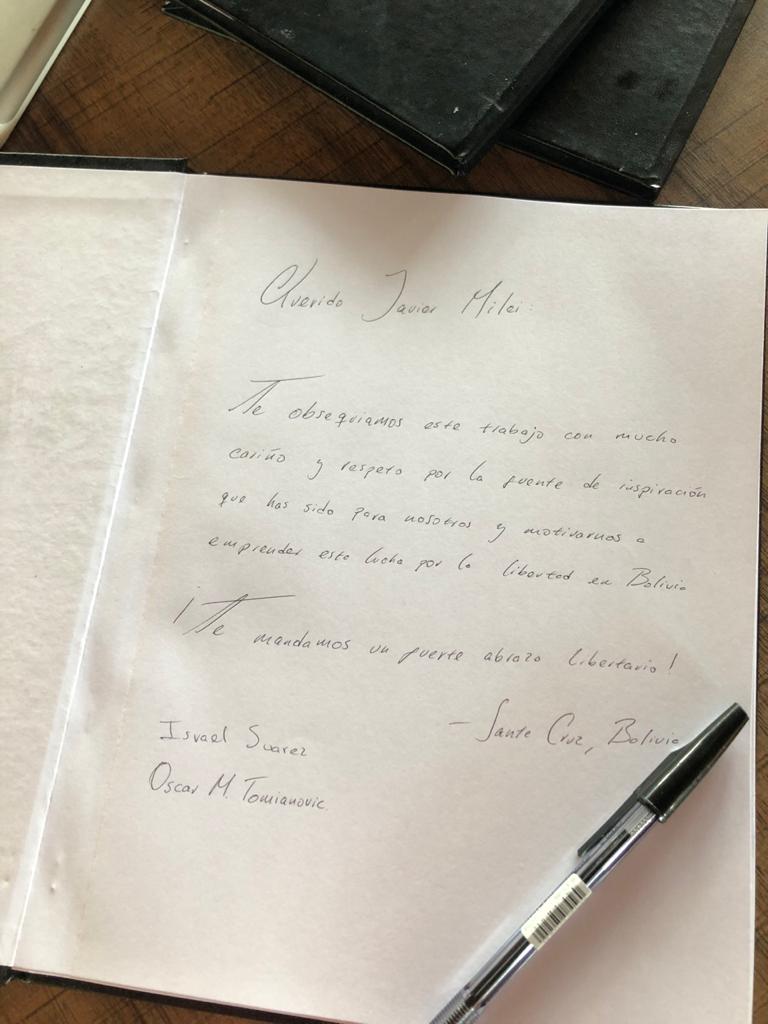 Querido Javier Milei:
Te obsequiamos este trabajo con mucho
cariño y respeto por la fuente de inspiración
que has sido para nosotros y motivarnos a
emprender esta lucha por la libertad en Bolivia
¡Te mandamos un fuerte abrazo libertario!
- Santa Cruz, Bolivia
Israel Suarez
Oscar M. Tomianovic